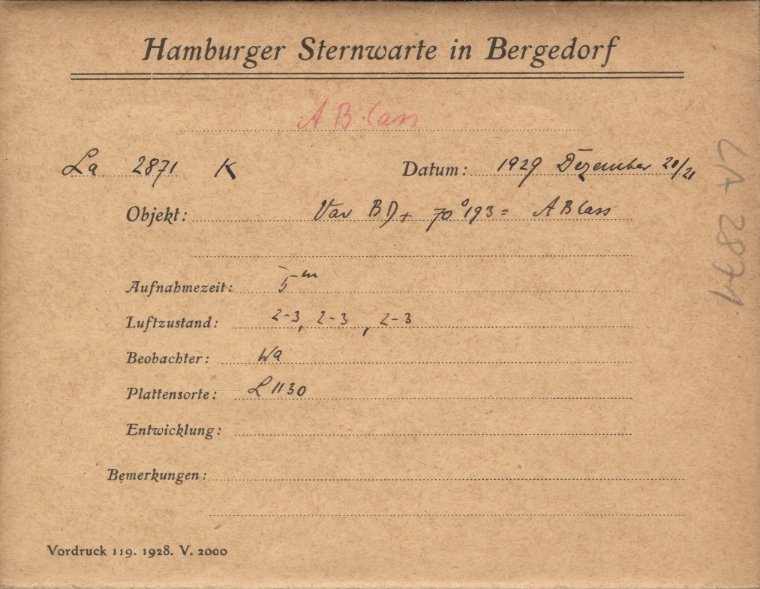 Hamburger Sternwarte in Bergedorf
AB Cass
La 2871 K Datum: 1929 Dezember 20/21
Objekt: Var BD + 70°193 = AB Cass
Aufnahmezeit: 5m
Luftzustand: 2-3, 2-3, 2-3
Beobachter: Wa
Plattensorte: L 1130
Entwicklung:
Bemerkungen:
Vordruck 119. 1928. V. 2000
LA 2871